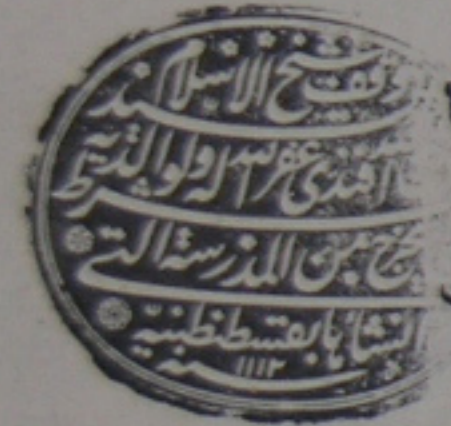 وقف شيخ الاسلام السيد
افندى غفر الله له ولوالديه بشرط
يخرج من المدرسة التى
انشأها بقسطنطينية
سنة ١١١٢